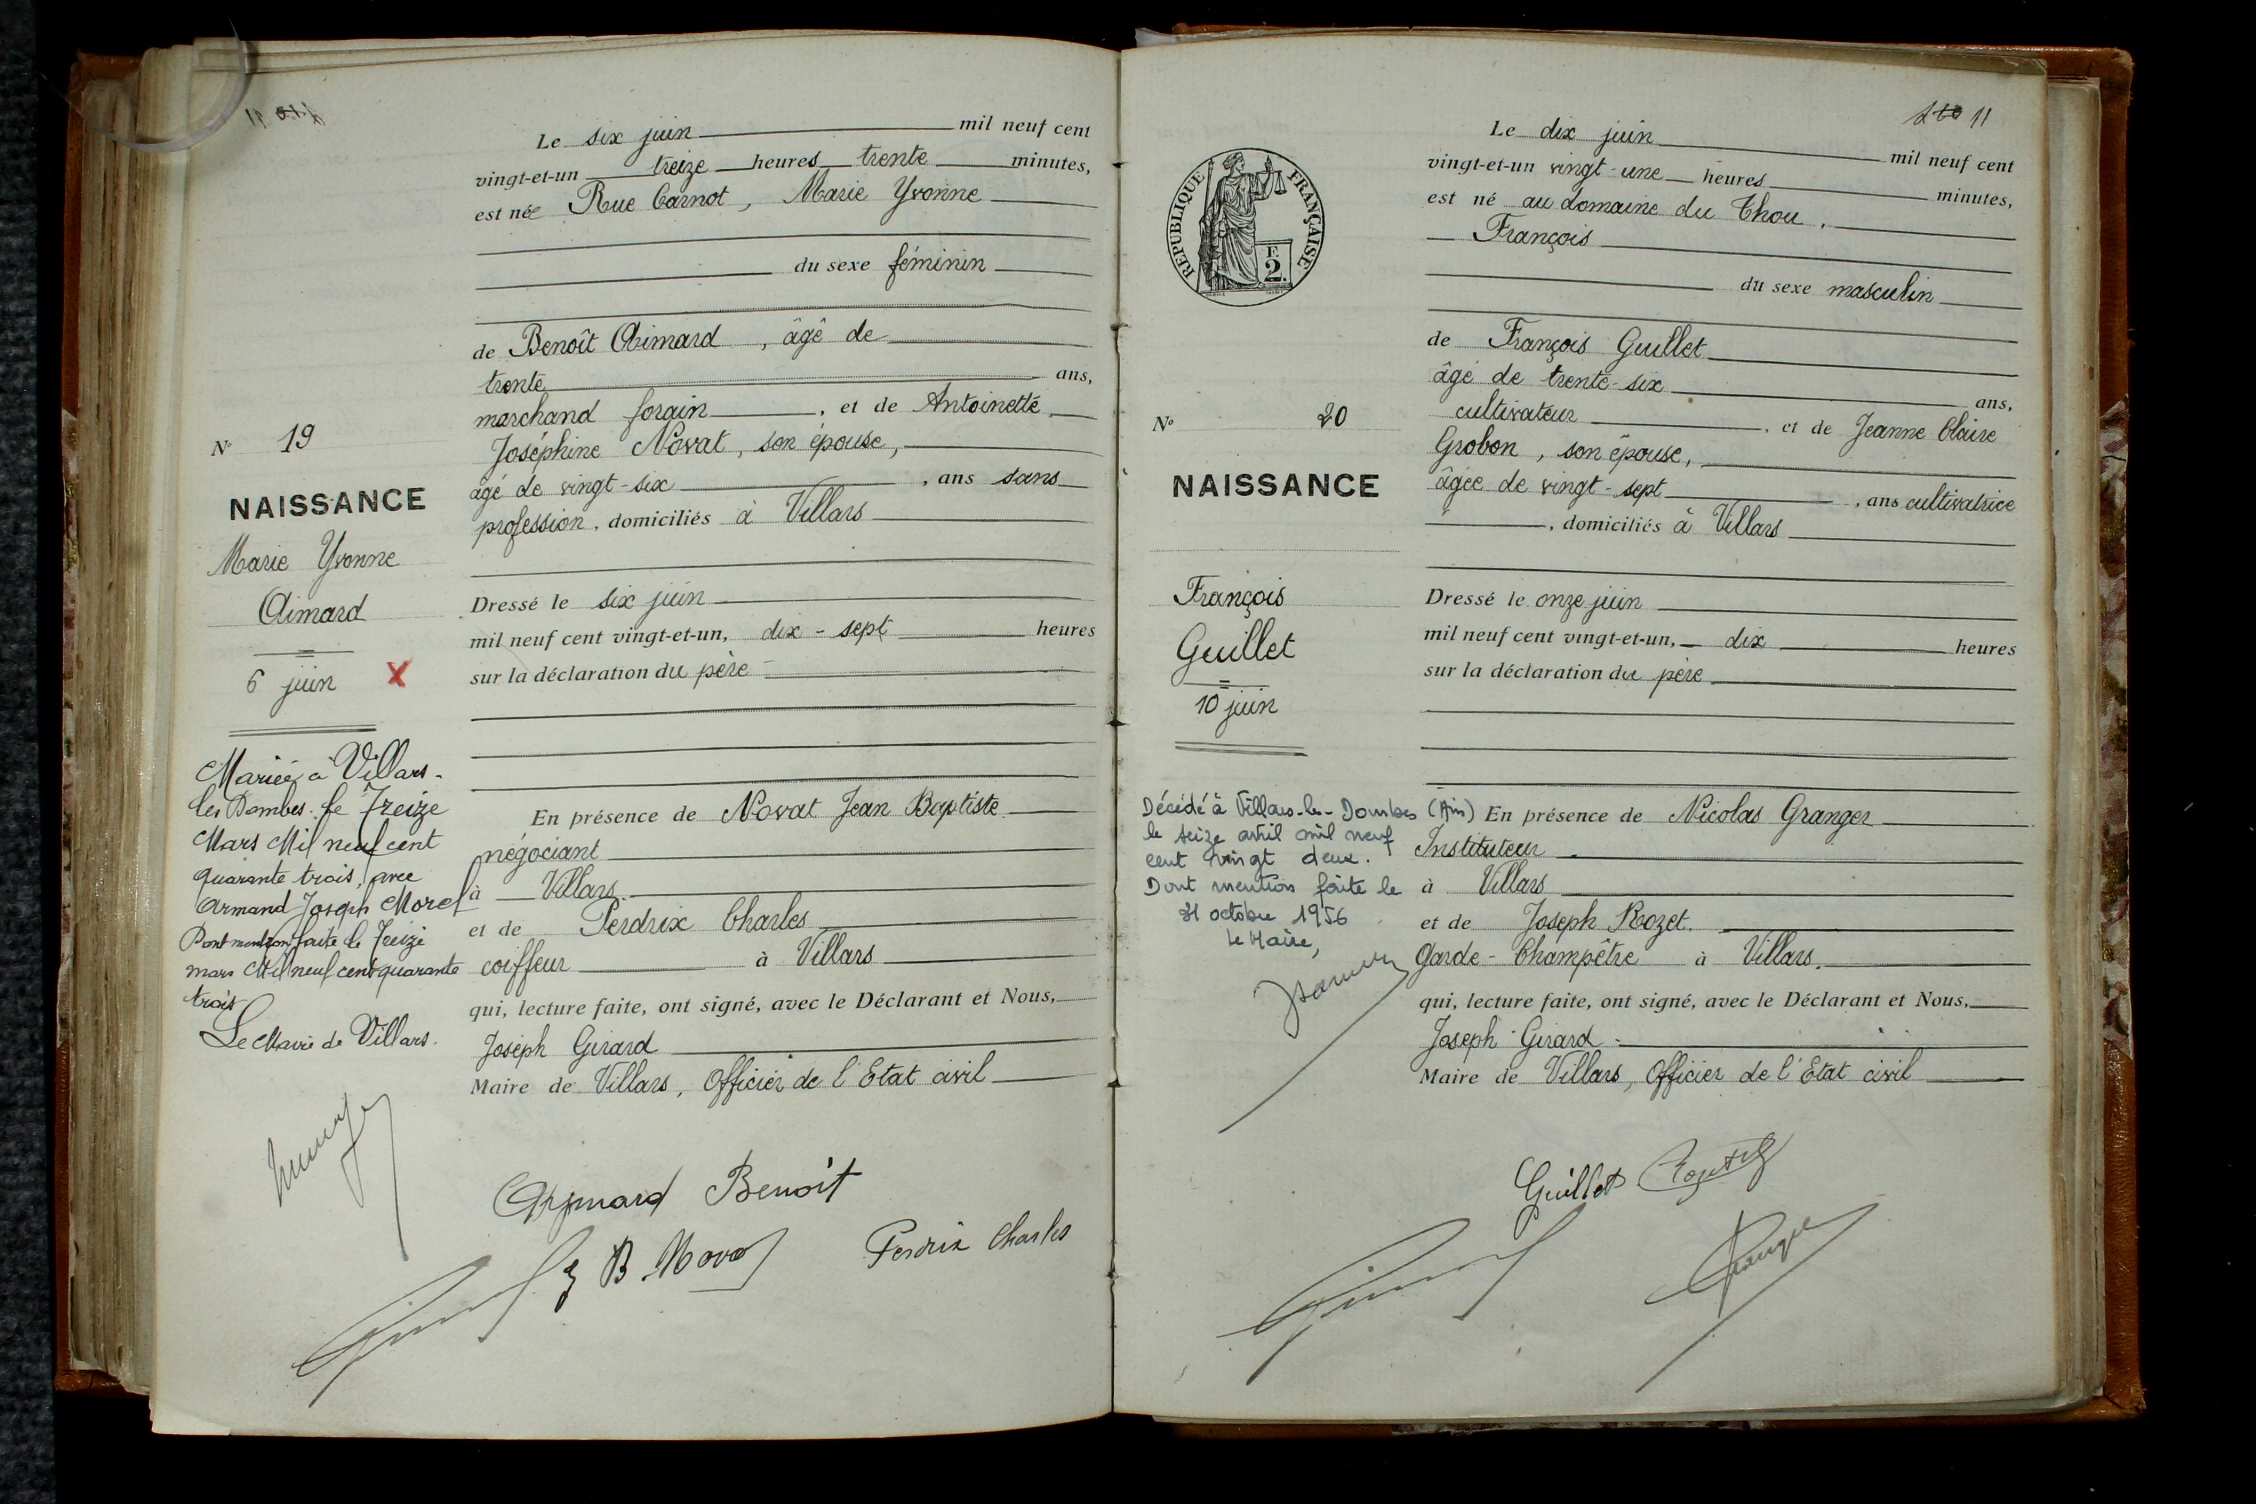 Le six juin mil neuf cent
vingt-et-un treize heures trente minutes,
est née Rue Carnot, Marie Yvonne
du sexe féminin
de Benoît Aimard, âgé de
trente ans,
marchand forain, et de Antoinette
Joséphine Novat, son épouse,
âgé de vingt-six, ans sans
profession, domiciliés à Villars
Dressé le six juin
mil neuf cent vingt-et-un, dix-sept heures
sur la déclaration du père
En présence de Novat Jean Baptiste
négociant
à Villars
et de Perdrix Charles
coiffeur à Villars
qui, lecture faite, ont signé, avec le Déclarant et Nous,
Joseph Girard
Maire de Villars, Officier de l'Etat civil
Aymard Benoit
J B Novat
Perdrix Charles
N° 19
NAISSANCE
Marie Yvonne
Aimard
6 juin X
Mariée à Villars-
les Dombes le Treize
Mars Mil neuf cent
quarante trois, avec
Armand Joseph Morel
Dont mention faite le Treize
mars Mil neuf cent quarante
trois
Le Maire de Villars.
11
Le dix juin mil neuf cent
vingt-et-un vingt-une heures minutes,
est né au domaine du Thou,
François
du sexe masculin
de François Guillet
âgé de trente-six ans,
cultivateur, et de Jeanne Claire
Grobon, son épouse,
âgée de vingt-sept, ans cultivatrice
, domiciliés à Villars
Dressé le onze juin
mil neuf cent vingt-et-un, dix heures
sur la déclaration du père
En présence de Nicolas Granger
Instituteur
à Villars
et de Joseph Rozet
Garde-Champêtre à Villars
qui, lecture faite, ont signé, avec le Déclarant et Nous,
Joseph Girard
Maire de Villars, Officier de l'Etat civil
Guillet
Granger
RÉPUBLIQUE FRANÇAISE
2 F.
N° 20
NAISSANCE
François
Guillet
10 juin
Décédé à Villars-les-Dombes (Ain)
le seize avril mil neuf
cent vingt deux.
Dont mention faite le
31 octobre 1956
Le Maire,